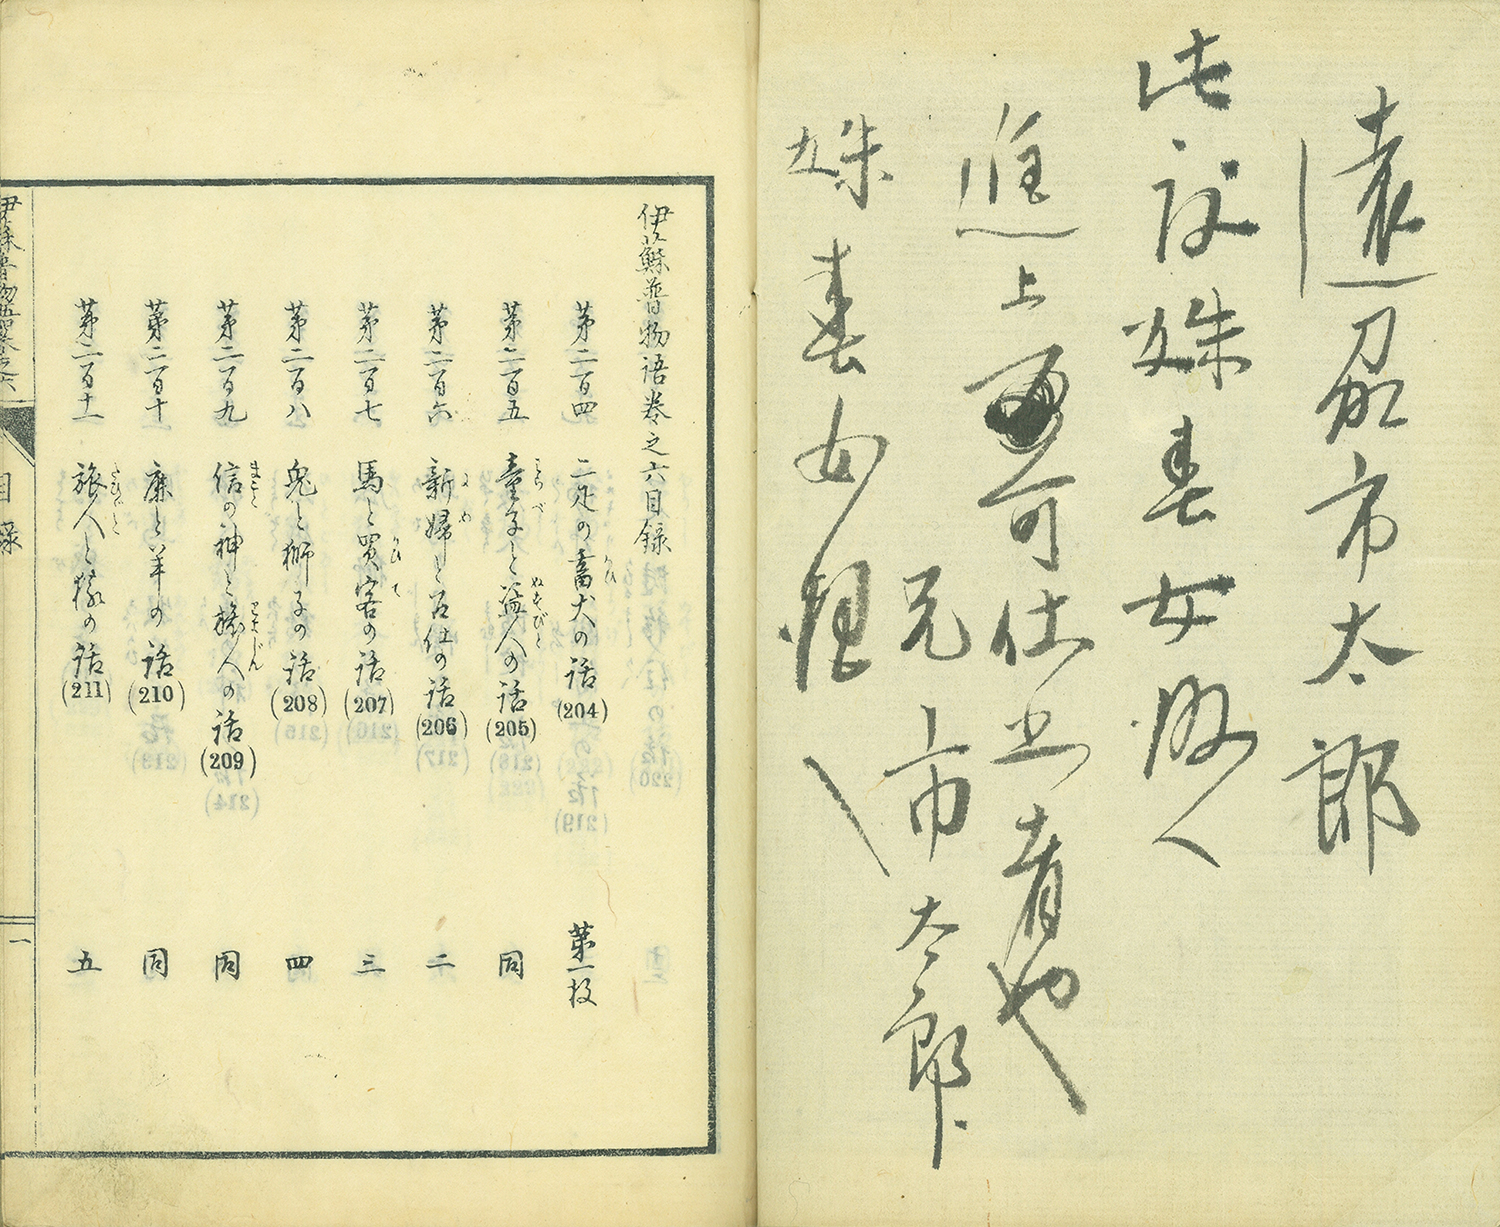 遠忍市太郎
此訳姝春女殿へ
進上可仕山者也
兄市太郎
姝春女
伊蘇普物語巻之六目録
第二百四 二疋の畜犬の話(204) 第一枚
第二百五 童子と盗人の話(205) 同
第二百六 新婦と召仕の話(206) 二
第二百七 馬と買客の話(207) 三
第二百八 兔と獅子の話(208) 四
第二百九 信の神と旅人の話(209) 同
第二百十 鹿と羊の話(210) 同
第二百十一 旅人と猿の話(211) 五
伊蘇普物語巻之六
目録
一